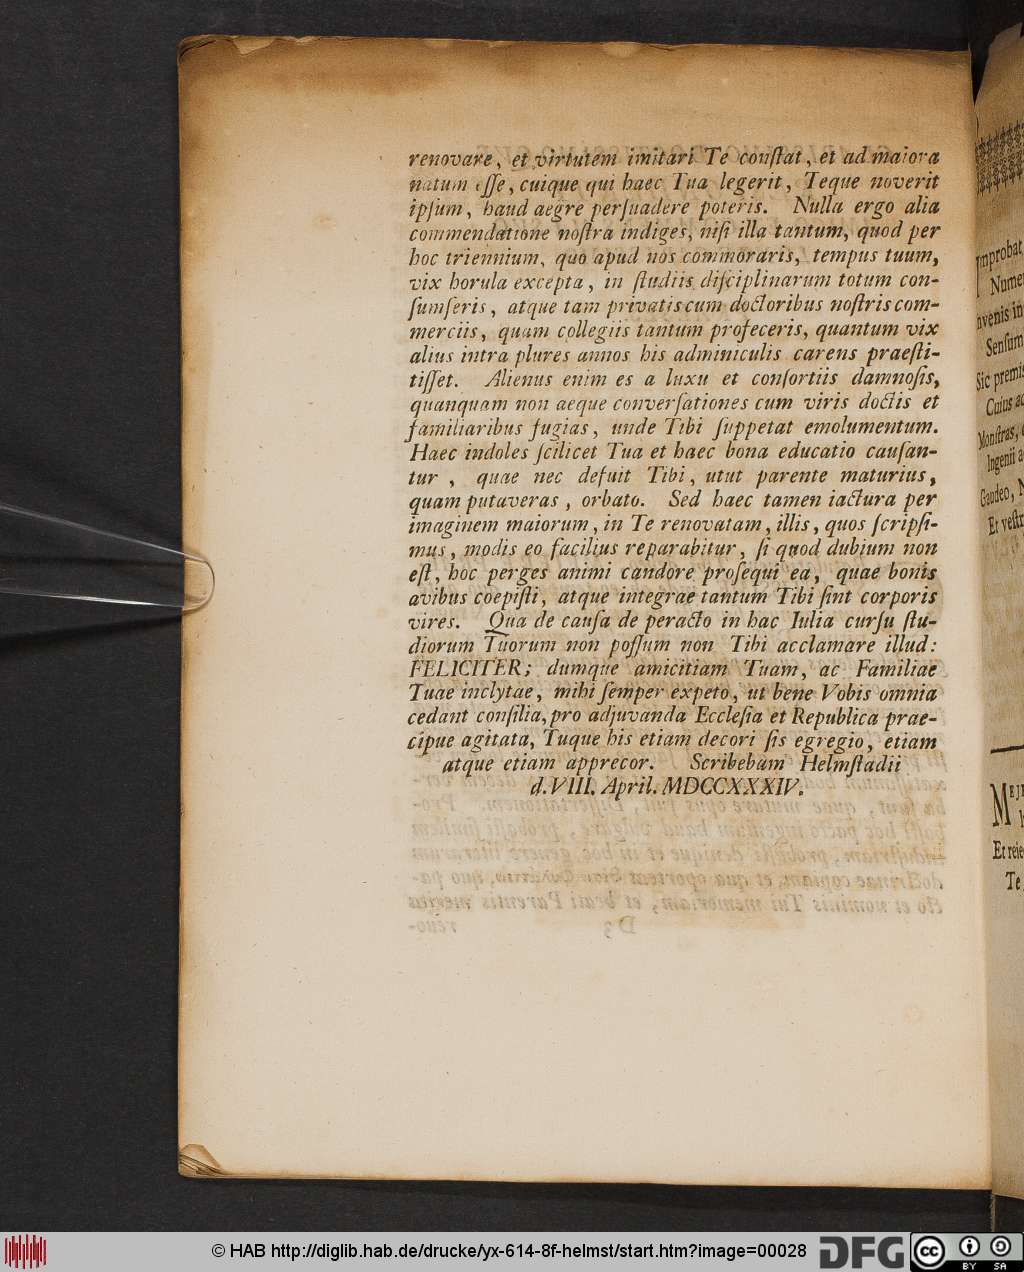 renovare, et virtutem imitari Te conſtat, et ad maiora
natum eſſe, cuique qui haec Tua legerit, Teque noverit
ipſum, haud aegre perſuadere poteris. Nulla ergo alia
commendatione noſtra indiges, niſi illa tantum, quod per
hoc triennium, quo apud nos commoraris, tempus tuum,
vix horula excepta, in ſtudiis diſciplinarum totum con-
ſumſeris, atque tam privatis cum doctoribus noſtris com-
merciis, quam collegiis tantum profeceris, quantum vix
alius intra plures annos his adminiculis carens praeſti-
tiſſet. Alienus enim es a luxu et conſortiis damnoſis,
quanquam non aeque converſationes cum viris doctis et
familiaribus fugias, unde Tibi ſuppetat emolumentum.
Haec indoles ſcilicet Tua et haec bona educatio cauſan-
tur, quae nec defuit Tibi, utut parente maturius,
quam putaveras, orbato. Sed haec tamen iactura per
imaginem maiorum, in Te renovatam, illis, quos ſcripſi-
mus, modis eo facilius reparabitur, ſi quod dubium non
eſt, hoc perges animi candore proſequi ea, quae bonis
avibus coepiſti, atque integrae tantum Tibi ſint corporis
vires. Qua de cauſa de peracto in hac Iulia curſu ſtu-
diorum Tuorum non poſſum non Tibi acclamare illud:
FELICITER; dumque amicitiam Tuam, ac Familiae
Tuae inclytae, mihi ſemper expeto, ut bene Vobis omnia
cedant conſilia, pro adjuvanda Eccleſia et Republica prae-
cipue agitata, Tuque his etiam decori ſis egregio, etiam
atque etiam apprecor. Scribebam Helmſtadii
d. VIII. April. MDCCXXXIV.
Improbat,
Senſum
Sic premis
Cuius
Monſtras,
Ingenii
Gaudeo,
Et veſtr
Te
© HAB http://diglib.hab.de/drucke/yx-614-8f-helmst/start.htm?image=00028
DFG
cc BY SA